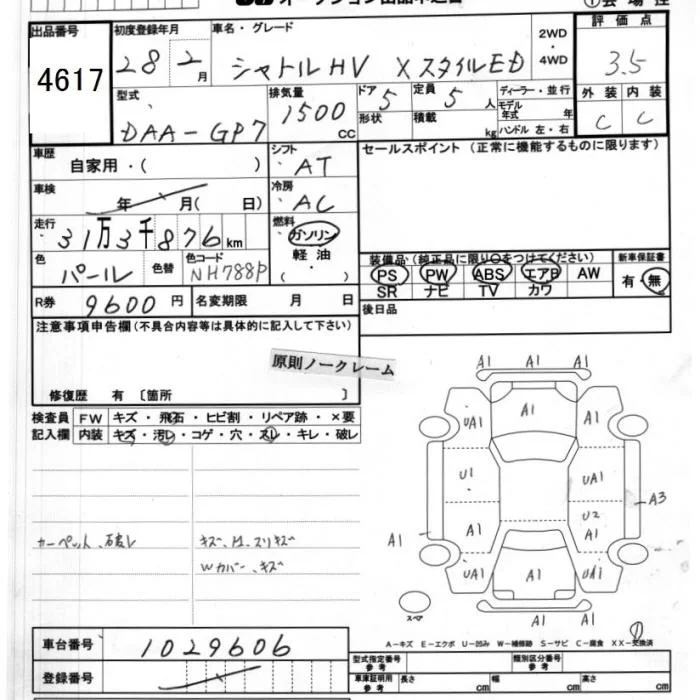 出品番号
4617
初度登録年月
28 2月
車名・グレード
シャトルHV Xスタイル ED
2WD
・
4WD
評価点
3.5
外装 内装
C C
型式
DAA-GP7
排気量
1500
CC
ドア 5
定員 5人
形状
積載 kg
ディーラー・並行
モデル年式 年
ハンドル 左・右
車歴
自家用・( )
シフト
AT
車検
年 月( 日)
冷房
AC
走行
31万3千876km
燃料
ガソリン
軽油
( ・ )
色
パール
色替
色コード
NH788P
R券
9600円
名変期限 月 日
セールスポイント(正常に機能するものに限ります)
装備品(純正品に限り○をつけてください)
PS PW ABS エアB AW
SR ナビ TV カワ
新車保証書
有・無
後日品
注意事項申告欄(不具合内容等は具体的に記入して下さい)
原則ノークレーム
修復歴 有 〔箇所 〕
検査員
記入欄
FW キズ・飛石・ヒビ割・リペア跡・×要
内装 キズ・汚レ・コゲ・穴・スレ・キレ・破レ
カーペット、破レ
キズ、スリキズ
Wカバー、キズ
A1 A1 A1
UA1 A1 A1
U1 UA1
A3
U2
A1 A1 A1
UA1 A1 UA1
スペア
A1 A1
A-キズ E-エクボ U-凹み W-補修跡 S-サビ C-腐食 XX-交換済
車台番号
1029606
登録番号
型式指定番号
参考
類別区分番号
参考
車庫証明用
参考
長さ cm
幅 cm
高さ cm